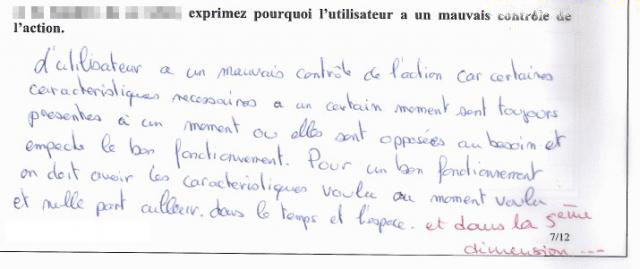 exprimez pourquoi l'utilisateur a un mauvais contrôle de
l'action.
d'utilisateur a un mauvais contrôle de l'action car certaines
caracteristiques necessaires a un certain moment sont toujours
presentes à un moment ou elles sont opposées au besoin et
empeche le bon fonctionnement. Pour un bon fonctionnement
on doit avoir les caracteristiques voulu au moment voulu
et nulle part ailleur. dans le temps et l'espace. et dans la 5eme
7/12
dimension ...